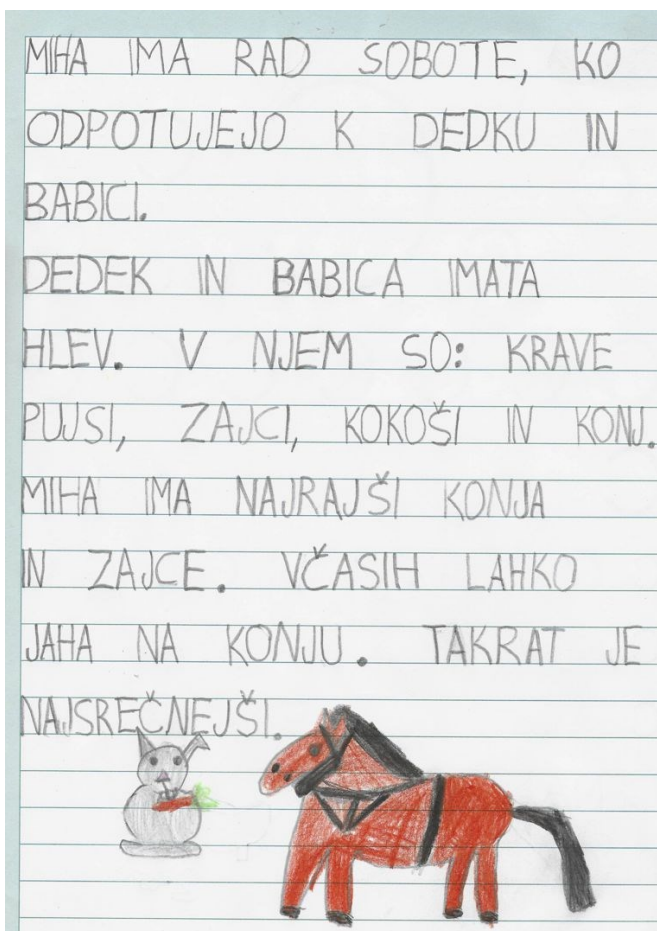 MIHA IMA RAD SOBOTE, KO
ODPOTUJEJO K DEDKU IN
BABICI.
DEDEK IN BABICA IMATA
HLEV. V NJEM SO: KRAVE
PUJSI, ZAJCI, KOKOŠI IN KONJ.
MIHA IMA NAJRAJŠI KONJA
IN ZAJCE. VČASIH LAHKO
JAHA NA KONJU. TAKRAT JE
NAJSREČNEJŠI.